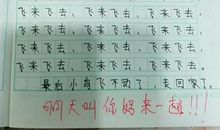 飞来飞去，飞来飞去，飞来飞去，
飞来飞去，飞来飞去，飞来飞去，
飞来飞去，飞来飞去，飞来飞去，
飞来飞去，飞来飞去，飞来飞去，
最后小鸟飞不动了，走回家了。
明天叫你妈来一趟!!!